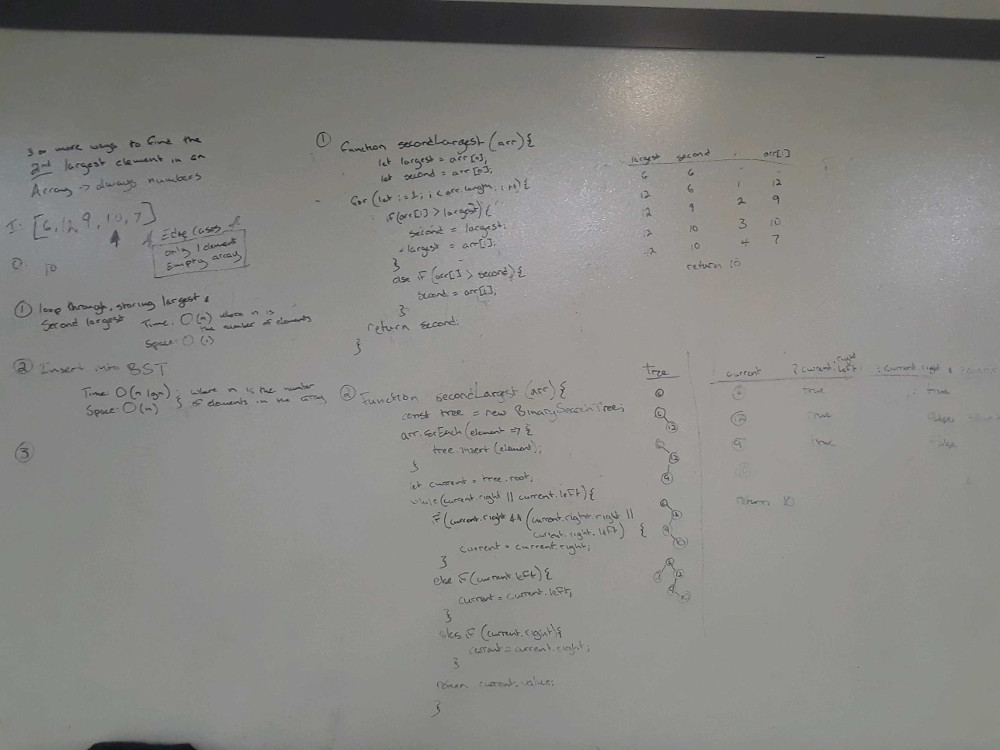 3 or more ways to find the
2nd largest element in an
Array -> always numbers
I: [6, 12, 9, 10, 7]
O: 10
Edge Cases
only 1 element
Empty array
① loop through, storing largest &
Second largest
Time: O(n) where n is
the number of elements
Space: O(1)
② Insert into BST
Time: O(n lgn) } where n is the number
Space: O(n) } of elements in the array
③
① function secondLargest (arr) {
let largest = arr[0];
let second = arr[0];
for (let i=1; i < arr.length; i++) {
if (arr[i] > largest) {
second = largest;
largest = arr[i];
}
else if (arr[i] > second) {
second = arr[i];
}
}
return second;
}
largest second i arr[i]
6 6 - -
12 6 1 12
12 9 2 9
12 10 3 10
12 10 4 7
return 10
② function secondLargest (arr) {
const tree = new BinarySearchTree;
arr.forEach(element => {
tree.insert (element);
}
let current = tree.root;
while (current.right || current.left) {
if (current.right && (current.right.right ||
current.right.left) {
current = current.right;
}
else if (current.left) {
current = current.left;
}
else if (current.right) {
current = current.right;
}
return current.value;
}
Tree
6
6
12
6
12
9
6
12
9
10
6
7
12
9
10
current
6 true true
12 true
9 true false
return 10